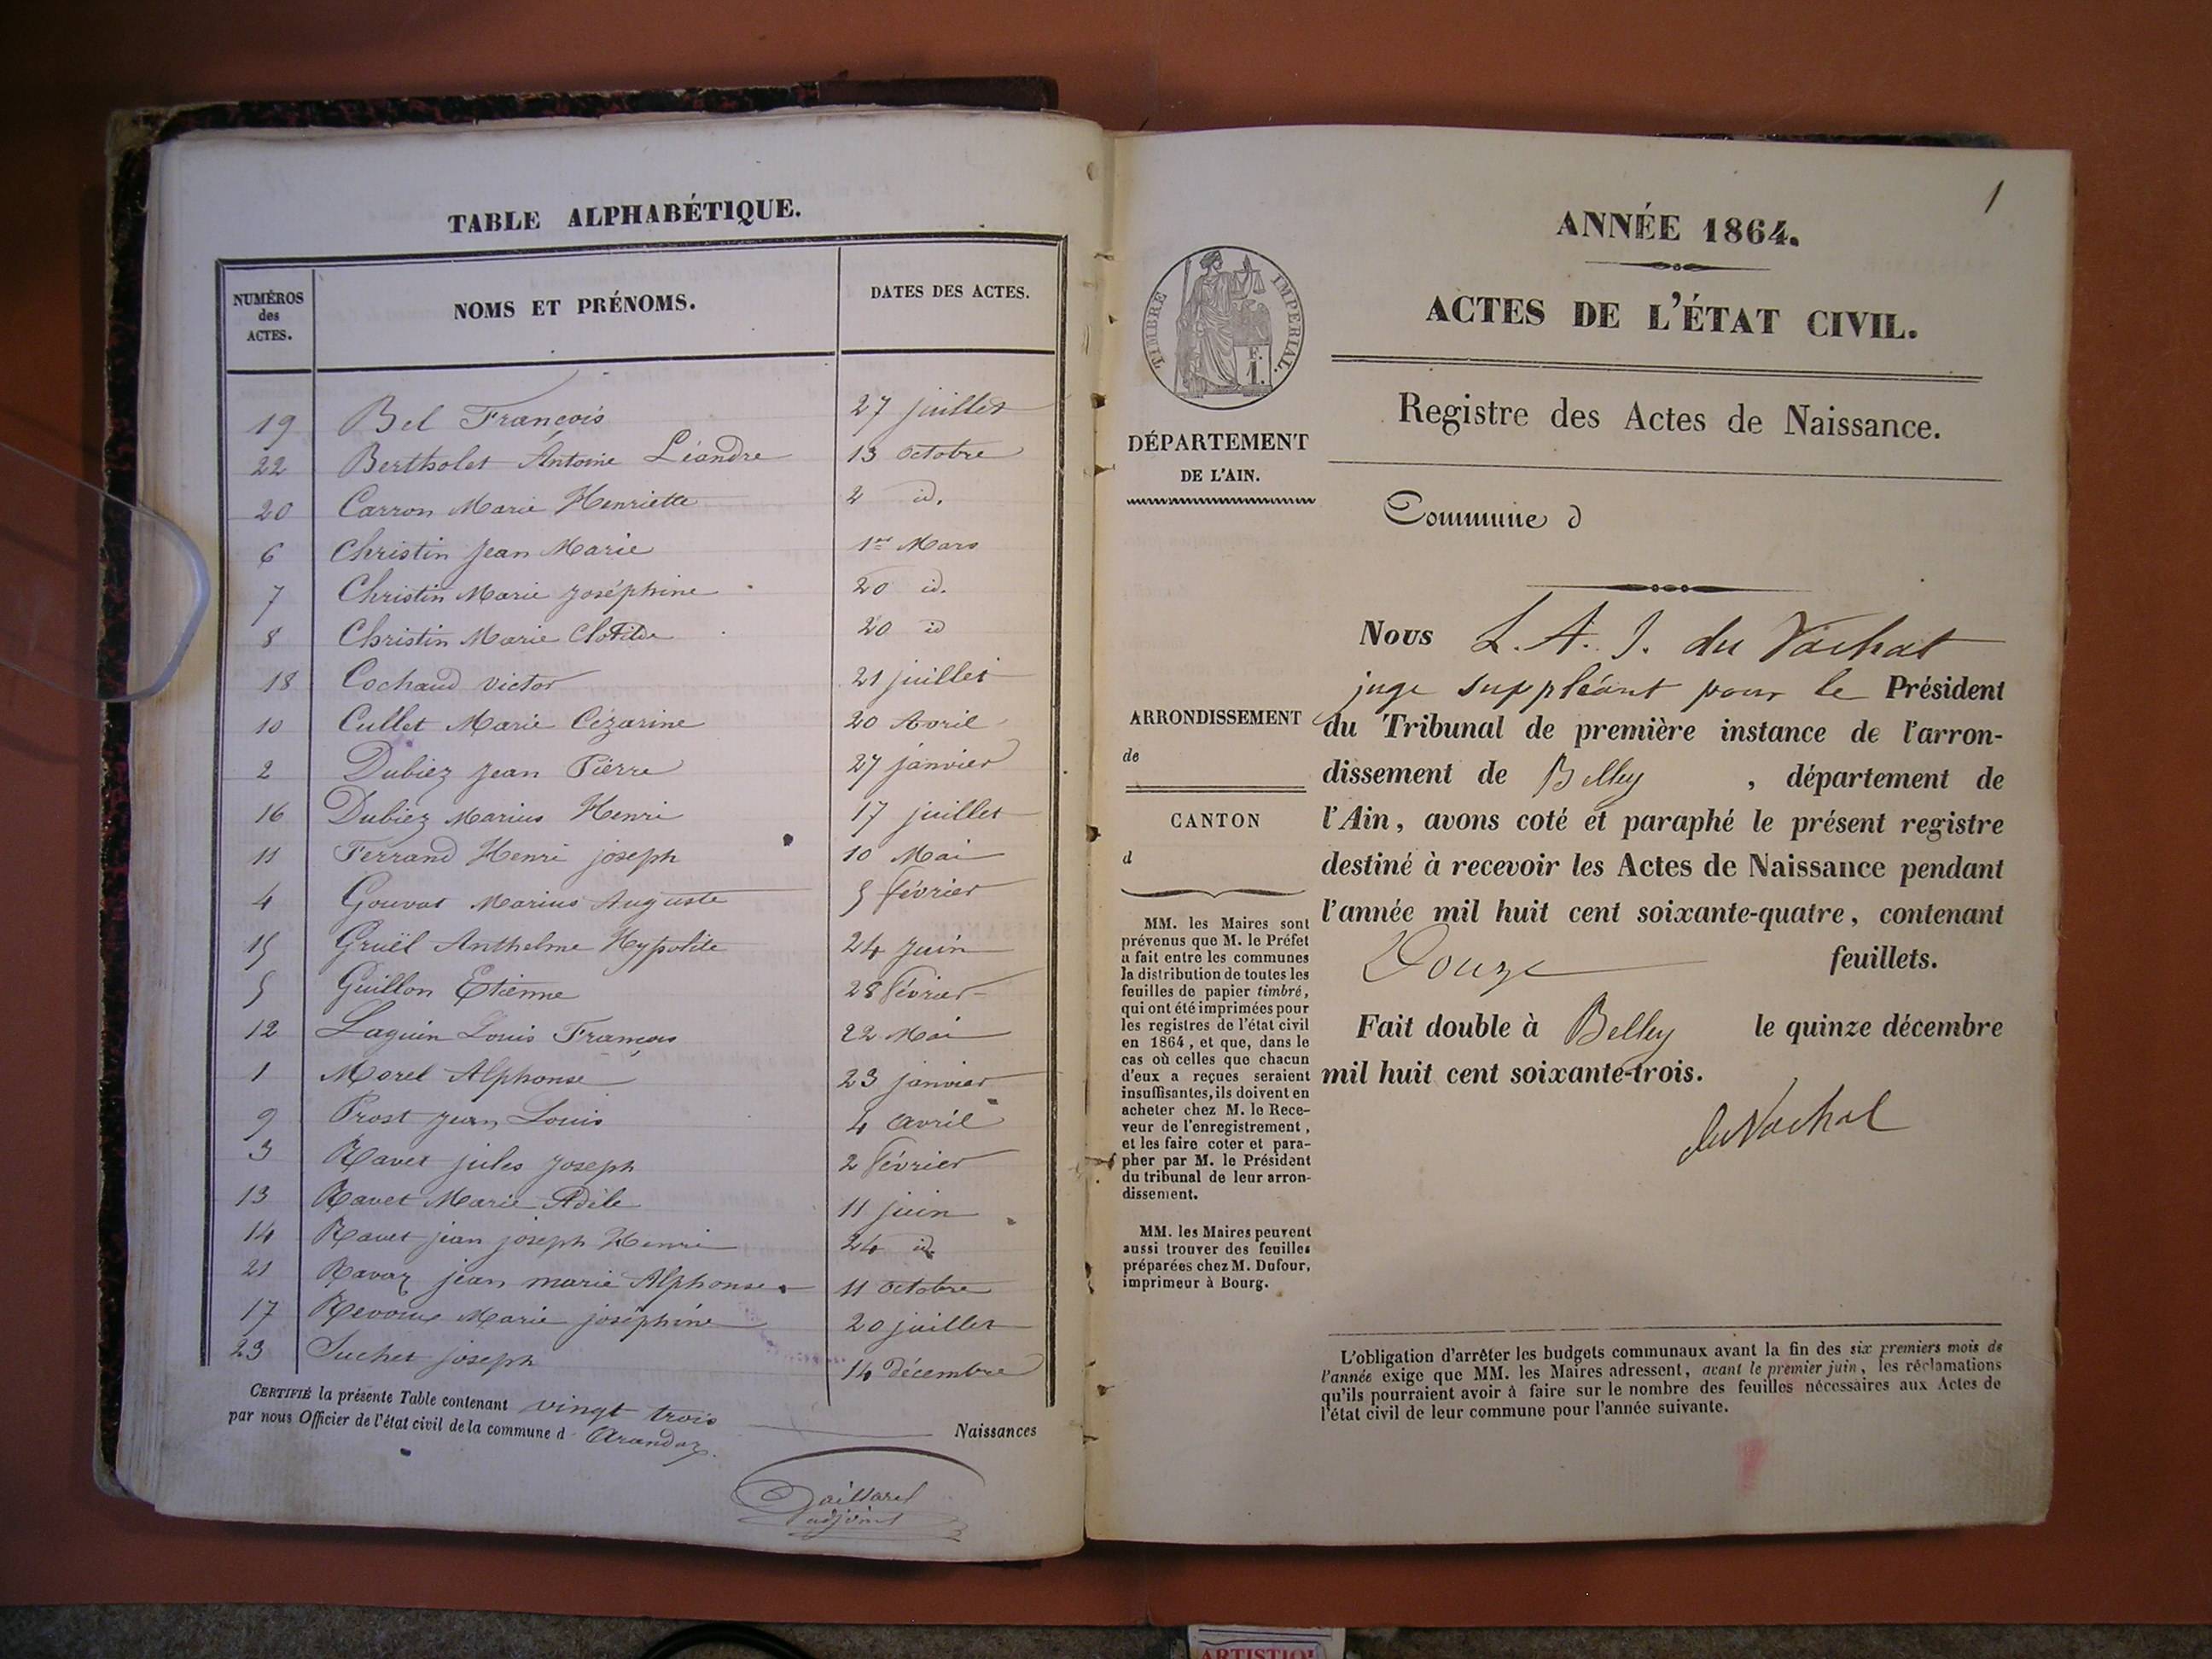 TABLE ALPHABÉTIQUE.
NUMÉROS des ACTES. NOMS ET PRÉNOMS. DATES DES ACTES.
19 Bel François 27 juillet
22 Bertholet Antoine Léandre 13 octobre
20 Carron Marie Henriette 2 id.
6 Christin Jean Marie 1er Mars
7 Christin Marie Joséphine 20 id.
8 Christin Marie Clotilde 20 id
18 Cochaud Victor 21 juillet
10 Cullet Marie Cézarine 20 Avril
2 Dubiez Jean Pierre 27 janvier
16 Dubiez Marius Henri 17 juillet
11 Ferrand Henri joseph 10 Mai
4 Gouvat Marius Auguste 5 février
15 Gruël Anthelme Hypolite 24 juin
5 Guillon Etienne 28 février
12 Laguin Louis François 22 Mai
1 Morel Alphonse 23 janvier
9 Prost Jean Louis 4 avril
3 Ravet jules Joseph 2 février
13 Ravet Marie Adèle 11 juin
14 Ravet jean joseph Henri 24 id.
21 Ravaz jean marie Alphonse 11 octobre
17 Marie joséphine 20 juillet
23 Suchet joseph 14 décembre
CERTIFIÉ la présente Table contenant vingt trois Naissances
par nous Officier de l'état civil de la commune d Arandaz.
adjoint
1
ANNÉE 1864.
ACTES DE L'ÉTAT CIVIL.
Registre des Actes de Naissance.
TIMBRE IMPERIAL.
F.
1.
DÉPARTEMENT
DE L'AIN.
Commune d
ARRONDISSEMENT
de
CANTON
d
MM. les Maires sont
prévenus que M. le Préfet
a fait entre les communes
la distribution de toutes les
feuilles de papier timbré,
qui ont été imprimées pour
les registres de l'état civil
en 1864, et que, dans le
cas où celles que chacun
d'eux a reçues seraient
insuffisantes, ils doivent en
acheter chez M. le Rece-
veur de l'enregistrement,
et les faire coter et para-
pher par M. le Président
du tribunal de leur arron-
dissement.
MM. les Maires peuvent
aussi trouver des feuilles
préparées chez M. Dufour,
imprimeur à Bourg.
Nous L. A. J. du Vachat
juge suppléant pour le Président
du Tribunal de première instance de l'arron-
dissement de Belley , département de
l'Ain, avons coté et paraphé le présent registre
destiné à recevoir les Actes de Naissance pendant
l'année mil huit cent soixante-quatre, contenant
Douze feuillets.
Fait double à Belley le quinze décembre
mil huit cent soixante-trois.
du Vachat
L'obligation d'arrêter les budgets communaux avant la fin des six premiers mois de
l'année exige que MM. les Maires adressent, avant le premier juin, les réclamations
qu'ils pourraient avoir à faire sur le nombre des feuilles nécessaires aux Actes de
l'état civil de leur commune pour l'année suivante.